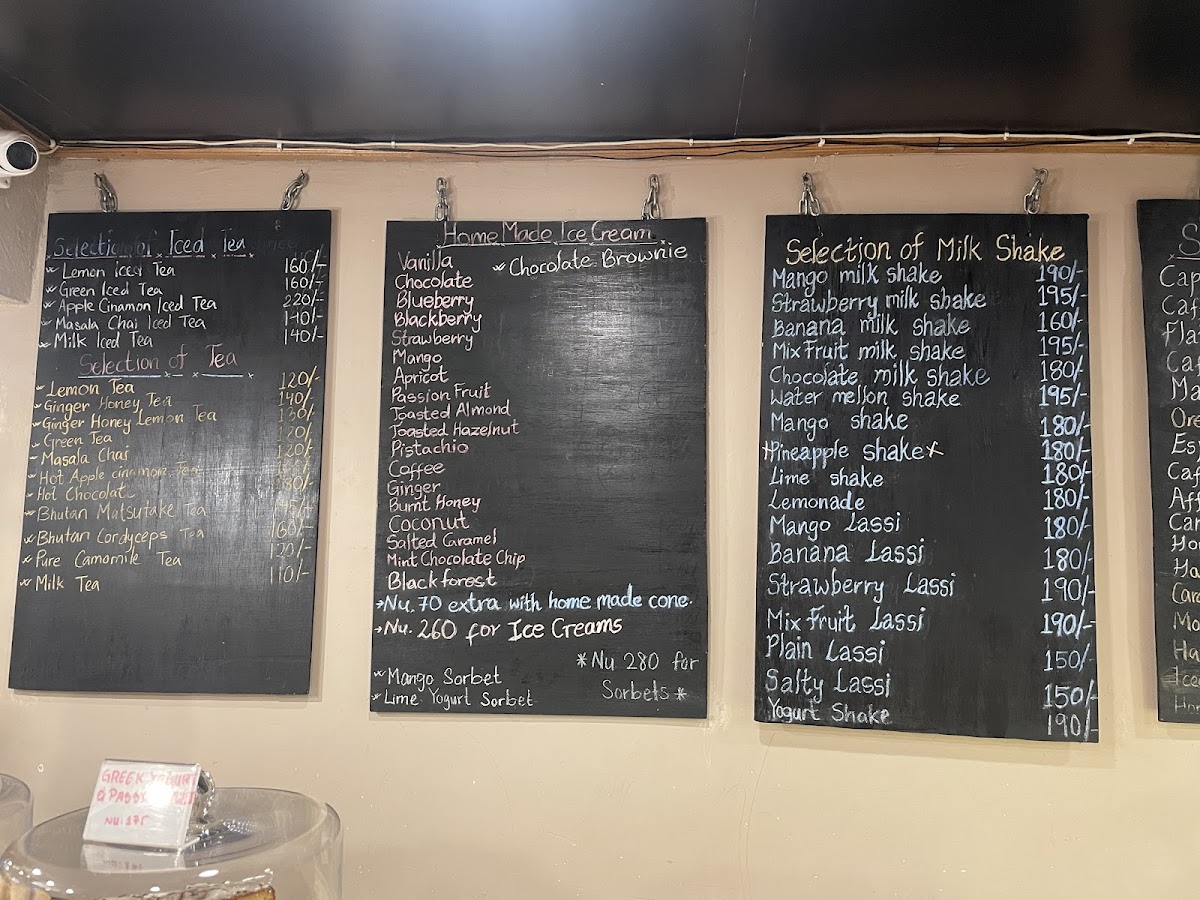 Selection of Iced Tea
Lemon Iced Tea 160/-
Green Iced Tea 160/-
Apple Cinamon Iced Tea 220/-
Masala Chai Iced Tea 140/-
Milk Iced Tea 140/-
Selection of Tea
Lemon Tea 120/-
Ginger Honey Tea 140/-
Ginger Honey Lemon Tea 130/-
Green Tea 120/-
Masala Chai 120/-
Hot Apple cinamon Tea
Hot Chocolate
Bhutan Matsutake Tea
Bhutan Cordyceps Tea 160/-
Pure Camomile Tea 120/-
Milk Tea 110/-
Home Made Ice Cream
Vanilla
* Chocolate Brownie
Chocolate
Blueberry
Blackberry
Strawberry
Mango
Apricot
Passion Fruit
Toasted Almond
Toasted Hazelnut
Pistachio
Coffee
Ginger
Burnt Honey
Coconut
Salted Caramel
Mint Chocolate Chip
Blackforest
→Nu. 70 extra with home made cone.
→Nu. 260 for Ice Creams
*Nu 280 for
Sorbets*
Mango Sorbet
Lime Yogurt Sorbet
Selection of Milk Shake
Mango milk shake 190/-
Strawberry milk shake 195/-
Banana milk shake 160/-
Mix Fruit milk shake 195/-
Chocolate milk shake 180/-
Water mellon shake 195/-
Mango shake 180/-
Pineapple shake 180/-
Lime shake 180/-
Lemonade 180/-
Mango Lassi 180/-
Banana Lassi 180/-
Strawberry Lassi 190/-
Mix Fruit Lassi 190/-
Plain Lassi 150/-
Salty Lassi 150/-
Yogurt Shake 190/-
GREEK YOGURT
NU.175